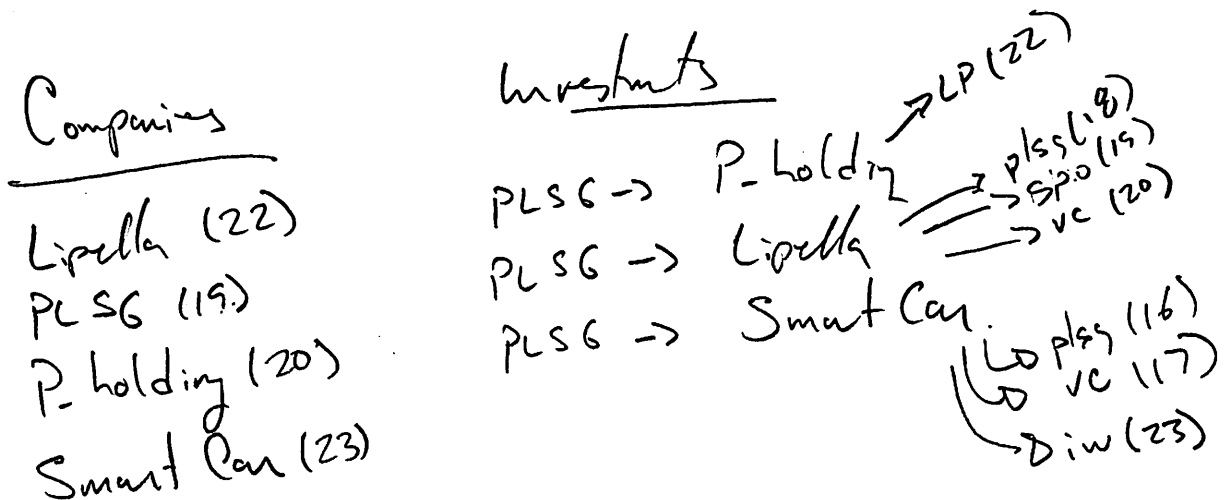 Companies
Lipella (22)
PLSG (19)
P-holding (20)
Smart Car (23)
Investments
PLSG -> P-holding
LP (22)
PLSG -> Lipella
plsg (18)
(19)
vc (20)
PLSG -> Smart Car
plsg (16)
vc (17)
(23)